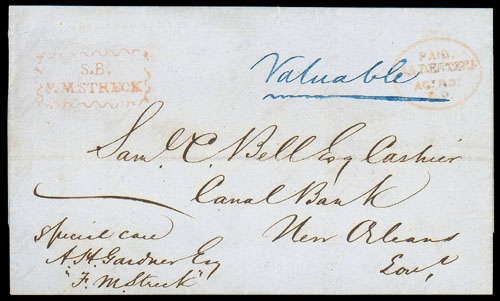 S.B.
F. M. STRECK
Valuable
PAID.
Saml. C. Bell Esq Cashier
Canal Bank
New Orleans
Special care
A. H. Gardner Esq
"F. M. Streck"